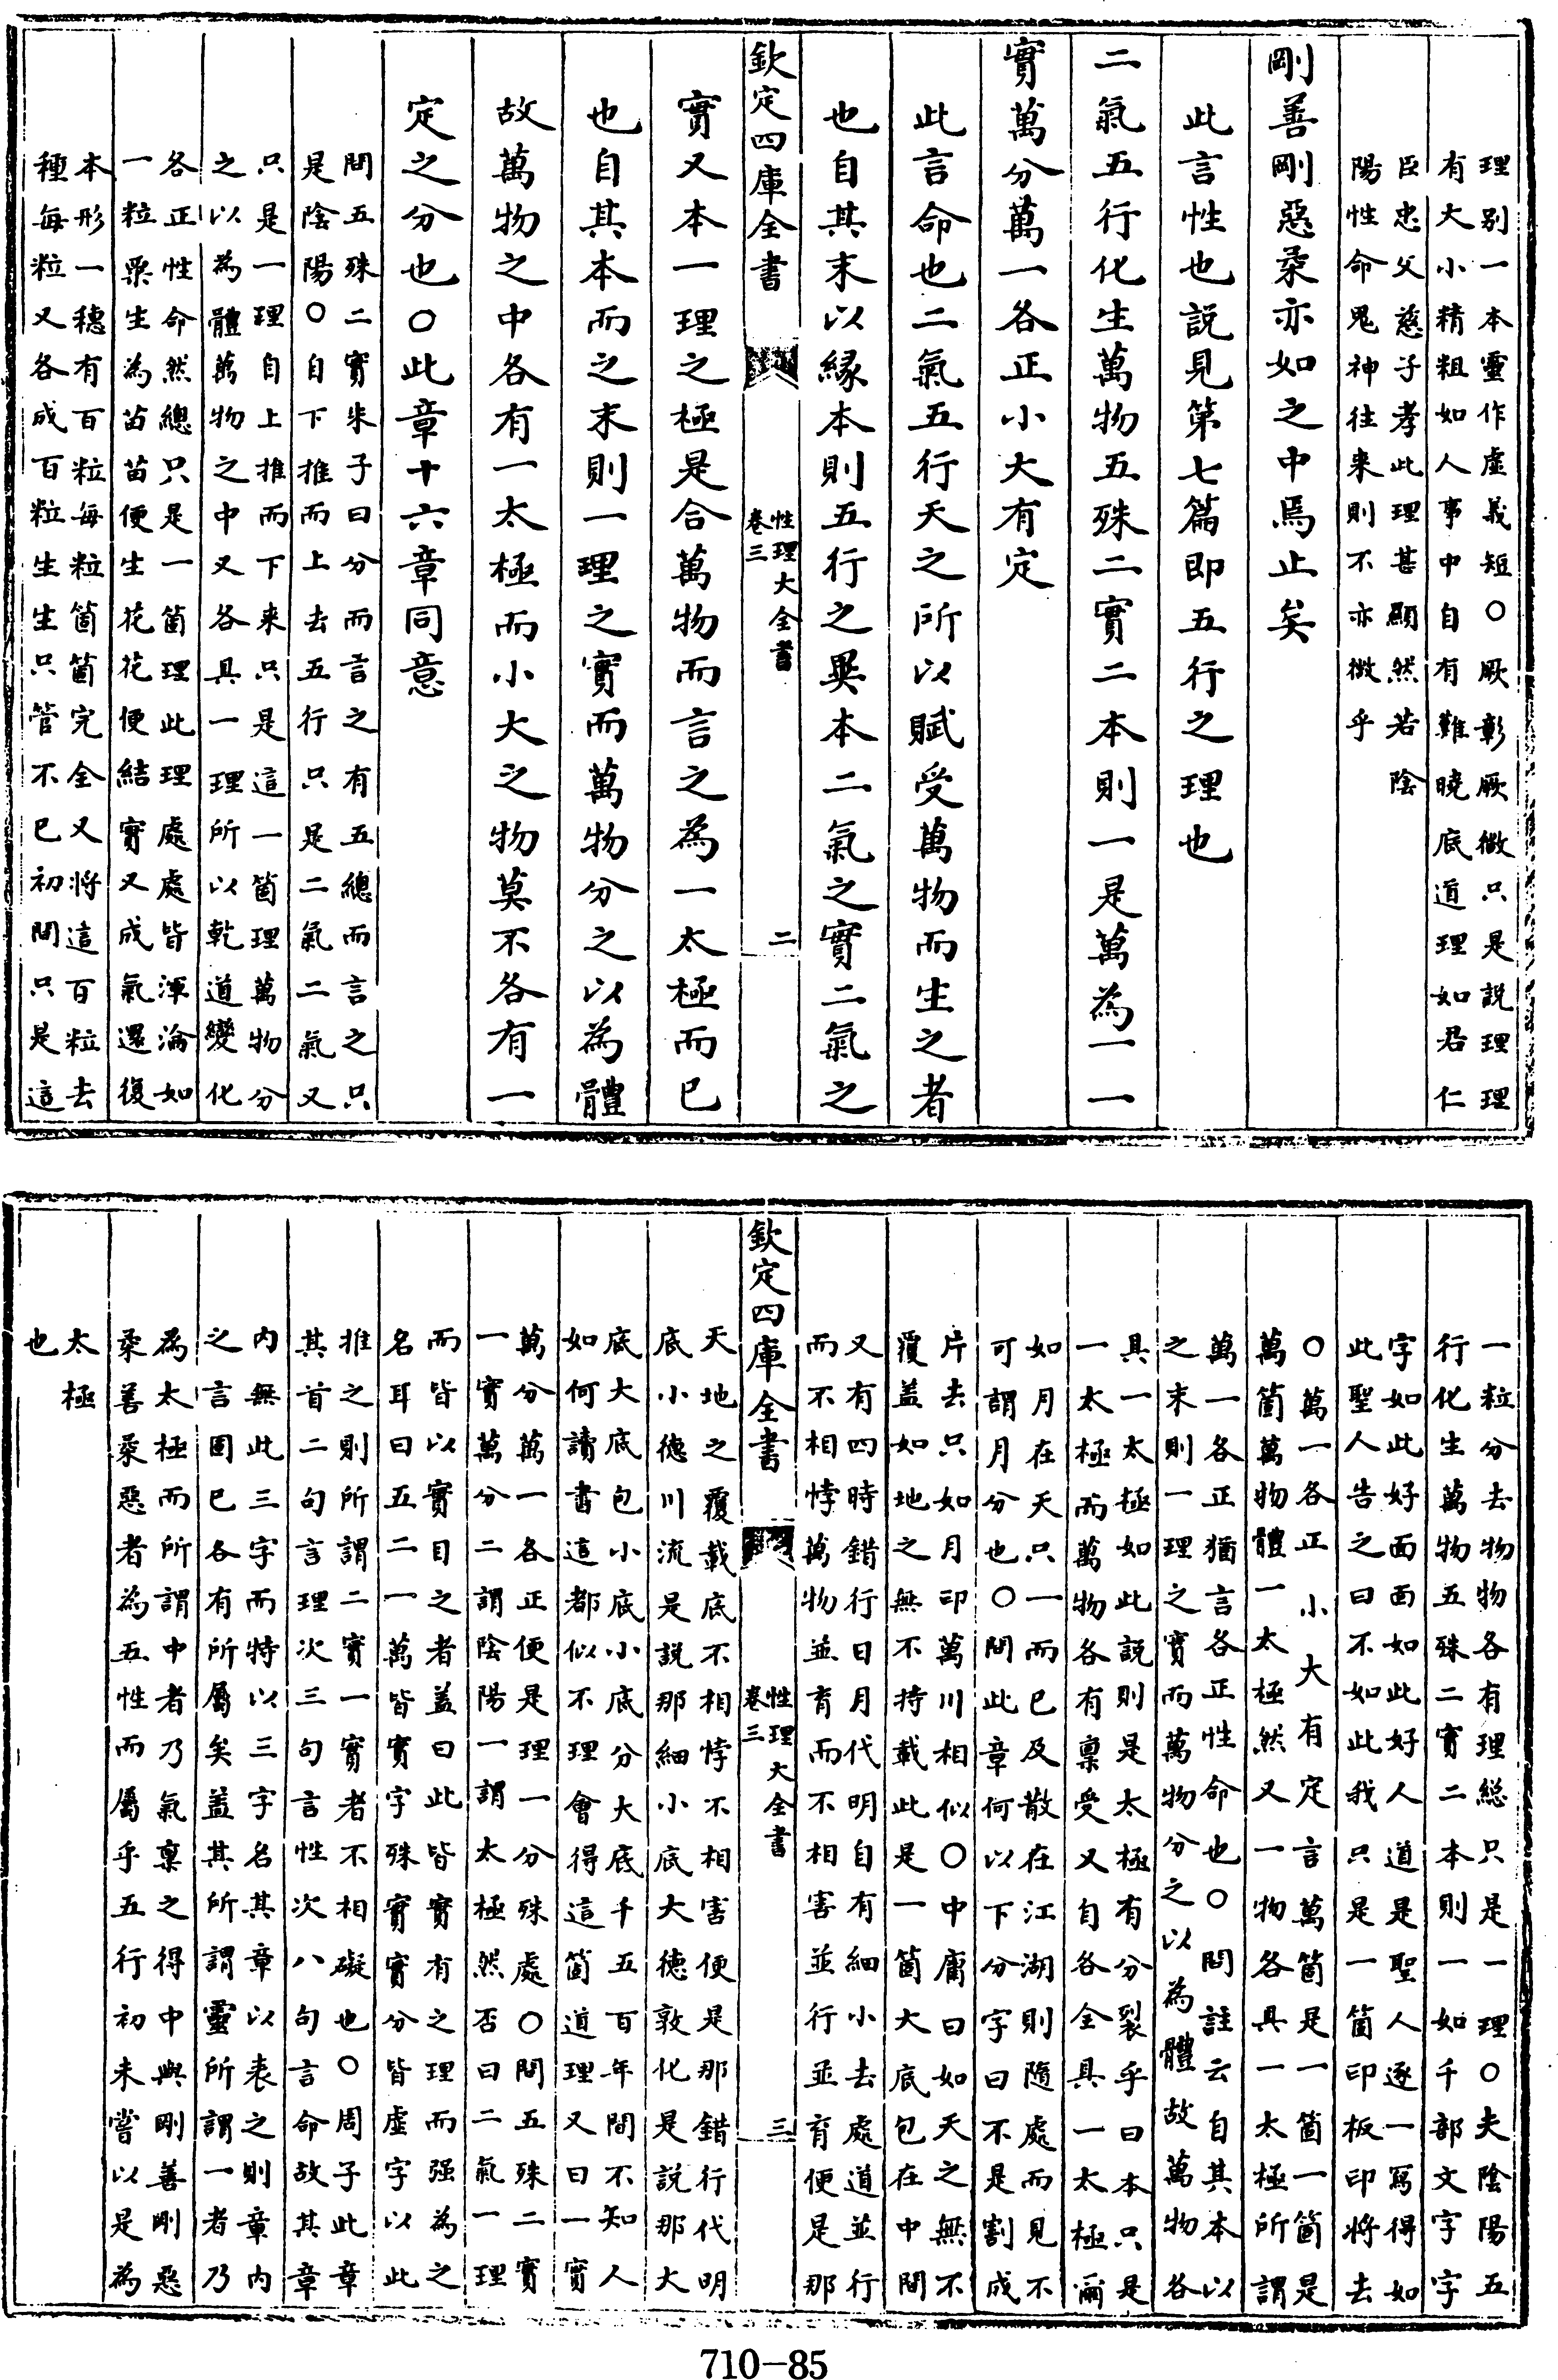 理别一本靈作虚義短〇厥彰厥微只是説理理
有大小精粗如人事中自有難曉底道理如君仁
臣忠父慈子孝此理甚顯然若陰
陽性命鬼神往来則不亦微乎
剛善剛惡柔亦如之中焉止矣
此言性也説見第七篇即五行之理也
二氣五行化生萬物五殊二實二本則一是萬為一一
實萬分萬一各正小大有定
此言命也二氣五行天之所以賦受萬物而生之者
也自其末以緣本則五行之異本二氣之實二氣之
欽定四庫全書
性理大全書
卷三
二
實又本一理之極是合萬物而言之為一太極而已
也自其本而之末則一理之實而萬物分之以為體
故萬物之中各有一太極而小大之物莫不各有一
定之分也〇此章十六章同意
問五殊二實朱子曰分而言之有五總而言之只
是陰陽〇自下推而上去五行只是二氣二氣又
只是一理自上推而下来只是這一箇理萬物分
之以為體萬物之中又各具一理所以乾道變化
各正性命然總只是一箇理此理處處皆渾淪如
一粒粟生為苗苗便生花花便結實又成氣還復
本形一穗有百粒每粒箇箇完全又將這百粒去
種每粒又各成百粒生生只管不已初間只是這
一粒分去物物各有理総只是一理〇夫陰陽五
行化生萬物五殊二實二本則一一如千部文字字
字如此好面面如此好人道是聖人逐一寫得如
此聖人告之曰不如此我只是一箇印板印將去
〇萬一各正小大有定言萬箇是一箇一箇是
萬箇萬物體一太極然又一物各具一太極所謂
萬一各正猶言各正性命也〇問註云自其本以
之末則一理之實而萬物分之以為體故萬物各
具一太極如此説則是太極有分裂乎曰本只是
一太極而萬物各有禀受又自各全具一太極爾
如月在天只一而已及散在江湖則隨處而見不
可謂月分也〇問此章何以下分字曰不是割成
片去只如月印萬川相似〇中庸曰如天之無不
覆盖如地之無不持載此是一箇大底包在中間
又有四時錯行日月代明自有細小去處道並行
而不相悖萬物並育而不相害並行並育便是那
欽定四庫全書
性理大全書
卷三
三
天地之覆載底不相悖不相害便是那錯行代明
底小德川流是説那細小底大德敦化是説那大
底大底包小底小底分大底千五百年間不知人
如何讀書這都似不理會得這箇道理又曰一實
萬分萬一各正便是理一分殊處〇問五殊二實
一實萬分二謂陰陽一謂太極然否曰二氣一理
而皆以實目之者盖曰此皆實有之理而强為之
名耳曰五二一萬皆實字殊實實分皆虚字以此
推之則所謂二實一實者不相礙也〇周子此章
其首二句言理次三句言性次八句言命故其章
内無此三字而特以三字名其章以表之則章内
之言固已各有所屬矣盖其所謂靈所謂一者乃
為太極而所謂中者乃氣禀之得中與剛善剛惡
柔善柔惡者為五性而屬乎五行初未嘗以是為
太極
也
710-85